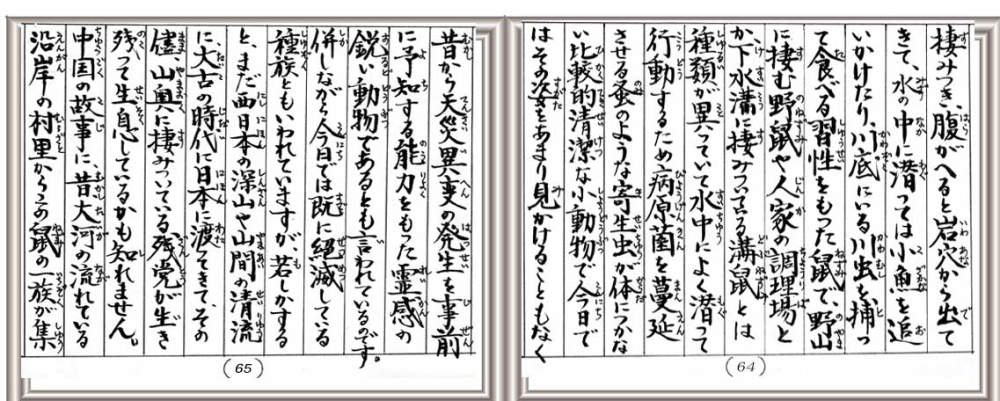 棲みつき、腹がへると岩穴から出て
きて、水の中に潜っては小魚を追
いかけたり、川底にいる川虫を、捕っ
て食べる習性をもった鼠で、野山
に棲む野鼠や人家の調理場と
か、下水溝に棲みついてる溝鼠とは
種類が異っていて水中によく潜って
行動するため病原菌を蔓延
させる蚤のような寄生虫が体につかな
い比較的清潔な小動物で今日で
はその姿をあまり見かけることもなく
(64)
昔から天災異変の発生を事前
に予知する能力をもった霊感の
鋭い動物であるとも言われているのです。
併しながら今日では既に絶滅している
種族ともいわれていますが、若しかする
と、まだ西日本の深山や山間の清流
に、太古の時代に日本に渡ってきて、その
儘、山奥に棲みついている残党が生き
残って生息しているかも知れません。
中国の故事に、昔大河の流れている
沿岸の村里からこの鼠の一族が集
(65)